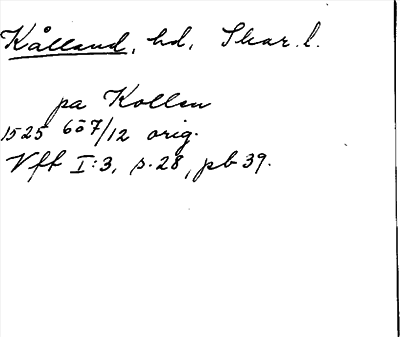 Kålland, hd, Skar. l.
pa Kollen
1525 6ō7/12 orig.
Vff I:3, s. 28, pb 39.